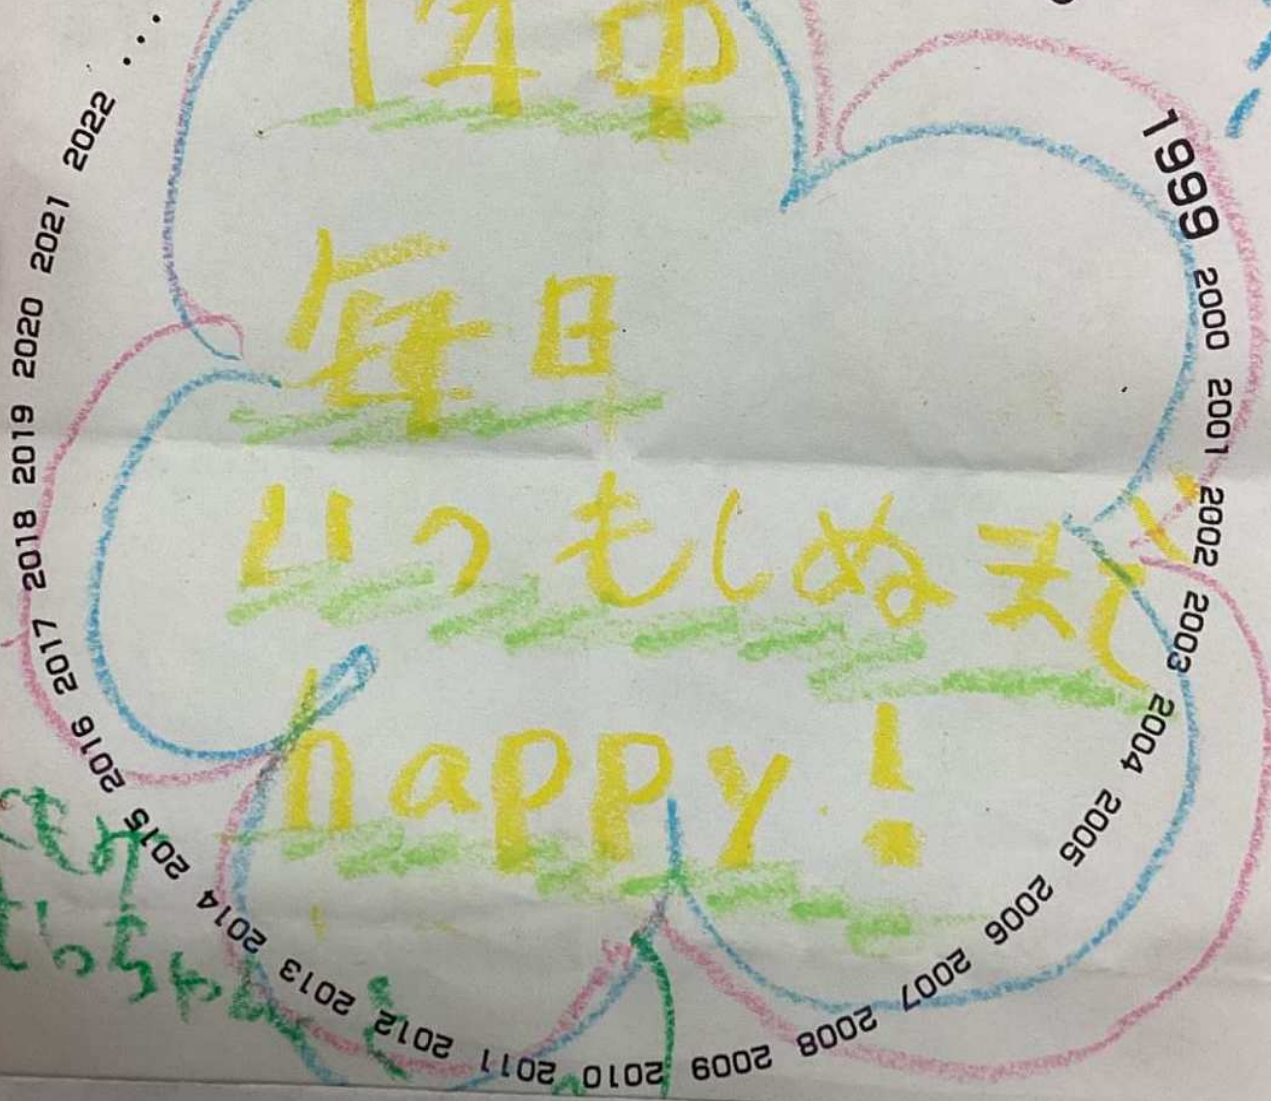 1年中
毎日
いつもしぬまで
happy!
1999 2000 2001 2002 2003 2004 2005 2006 2007 2008 2009 2010 2011 2012 2013 2014 2015 2016 2017 2018 2019 2020 2021 2022 ...